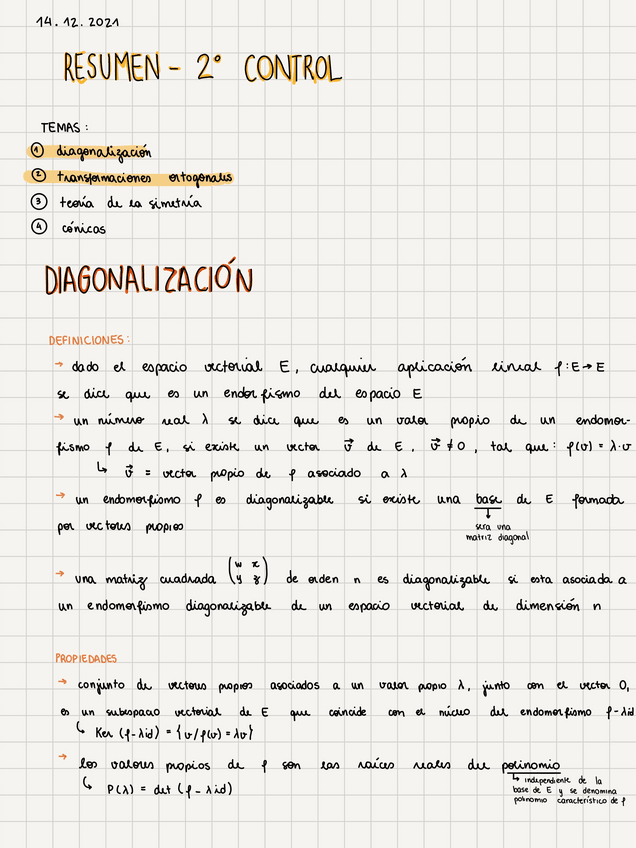 14.12.2021
RESUMEN - 2° CONTROL
TEMAS:
① diagonalización
② transformaciones ortogonales
③ teoría de la simetría
④ cónicas
DIAGONALIZACIÓN
DEFINICIONES:
→ dado el espacio vectorial E, cualquier aplicación lineal f: E → E
se dice que es un endorfismo del espacio E
→ un número real λ se dice que es un valor propio de un endomor-
fismo f de E, si existe un vector v⃗ de E, v⃗ ≠ 0, tal que: f(v) = λ·v
↳ v⃗ = vector propio de f asociado a λ
→ un endomorfismo f es diagonalizable si existe una base de E formada
por vectores propios
↓
sera una
matriz diagonal
→ una matriz cuadrada (w x
y z) de orden n es diagonalizable si esta asociada a
un endomorfismo diagonalizable de un espacio vectorial de dimensión n
PROPIEDADES
→ conjunto de vectores propios asociados a un valor propio λ, junto con el vector 0,
es un subespacio vectorial de E que coincide con el núcleo del endomorfismo f-λid
↳ Ker (f-λid) = {v/f(v) = λv}
→ los valores propios de f son las raíces reales del polinomio
↳ P(λ) = det (f - λid)
↳ independiente de la
base de E y se denomina
polinomio característico de f